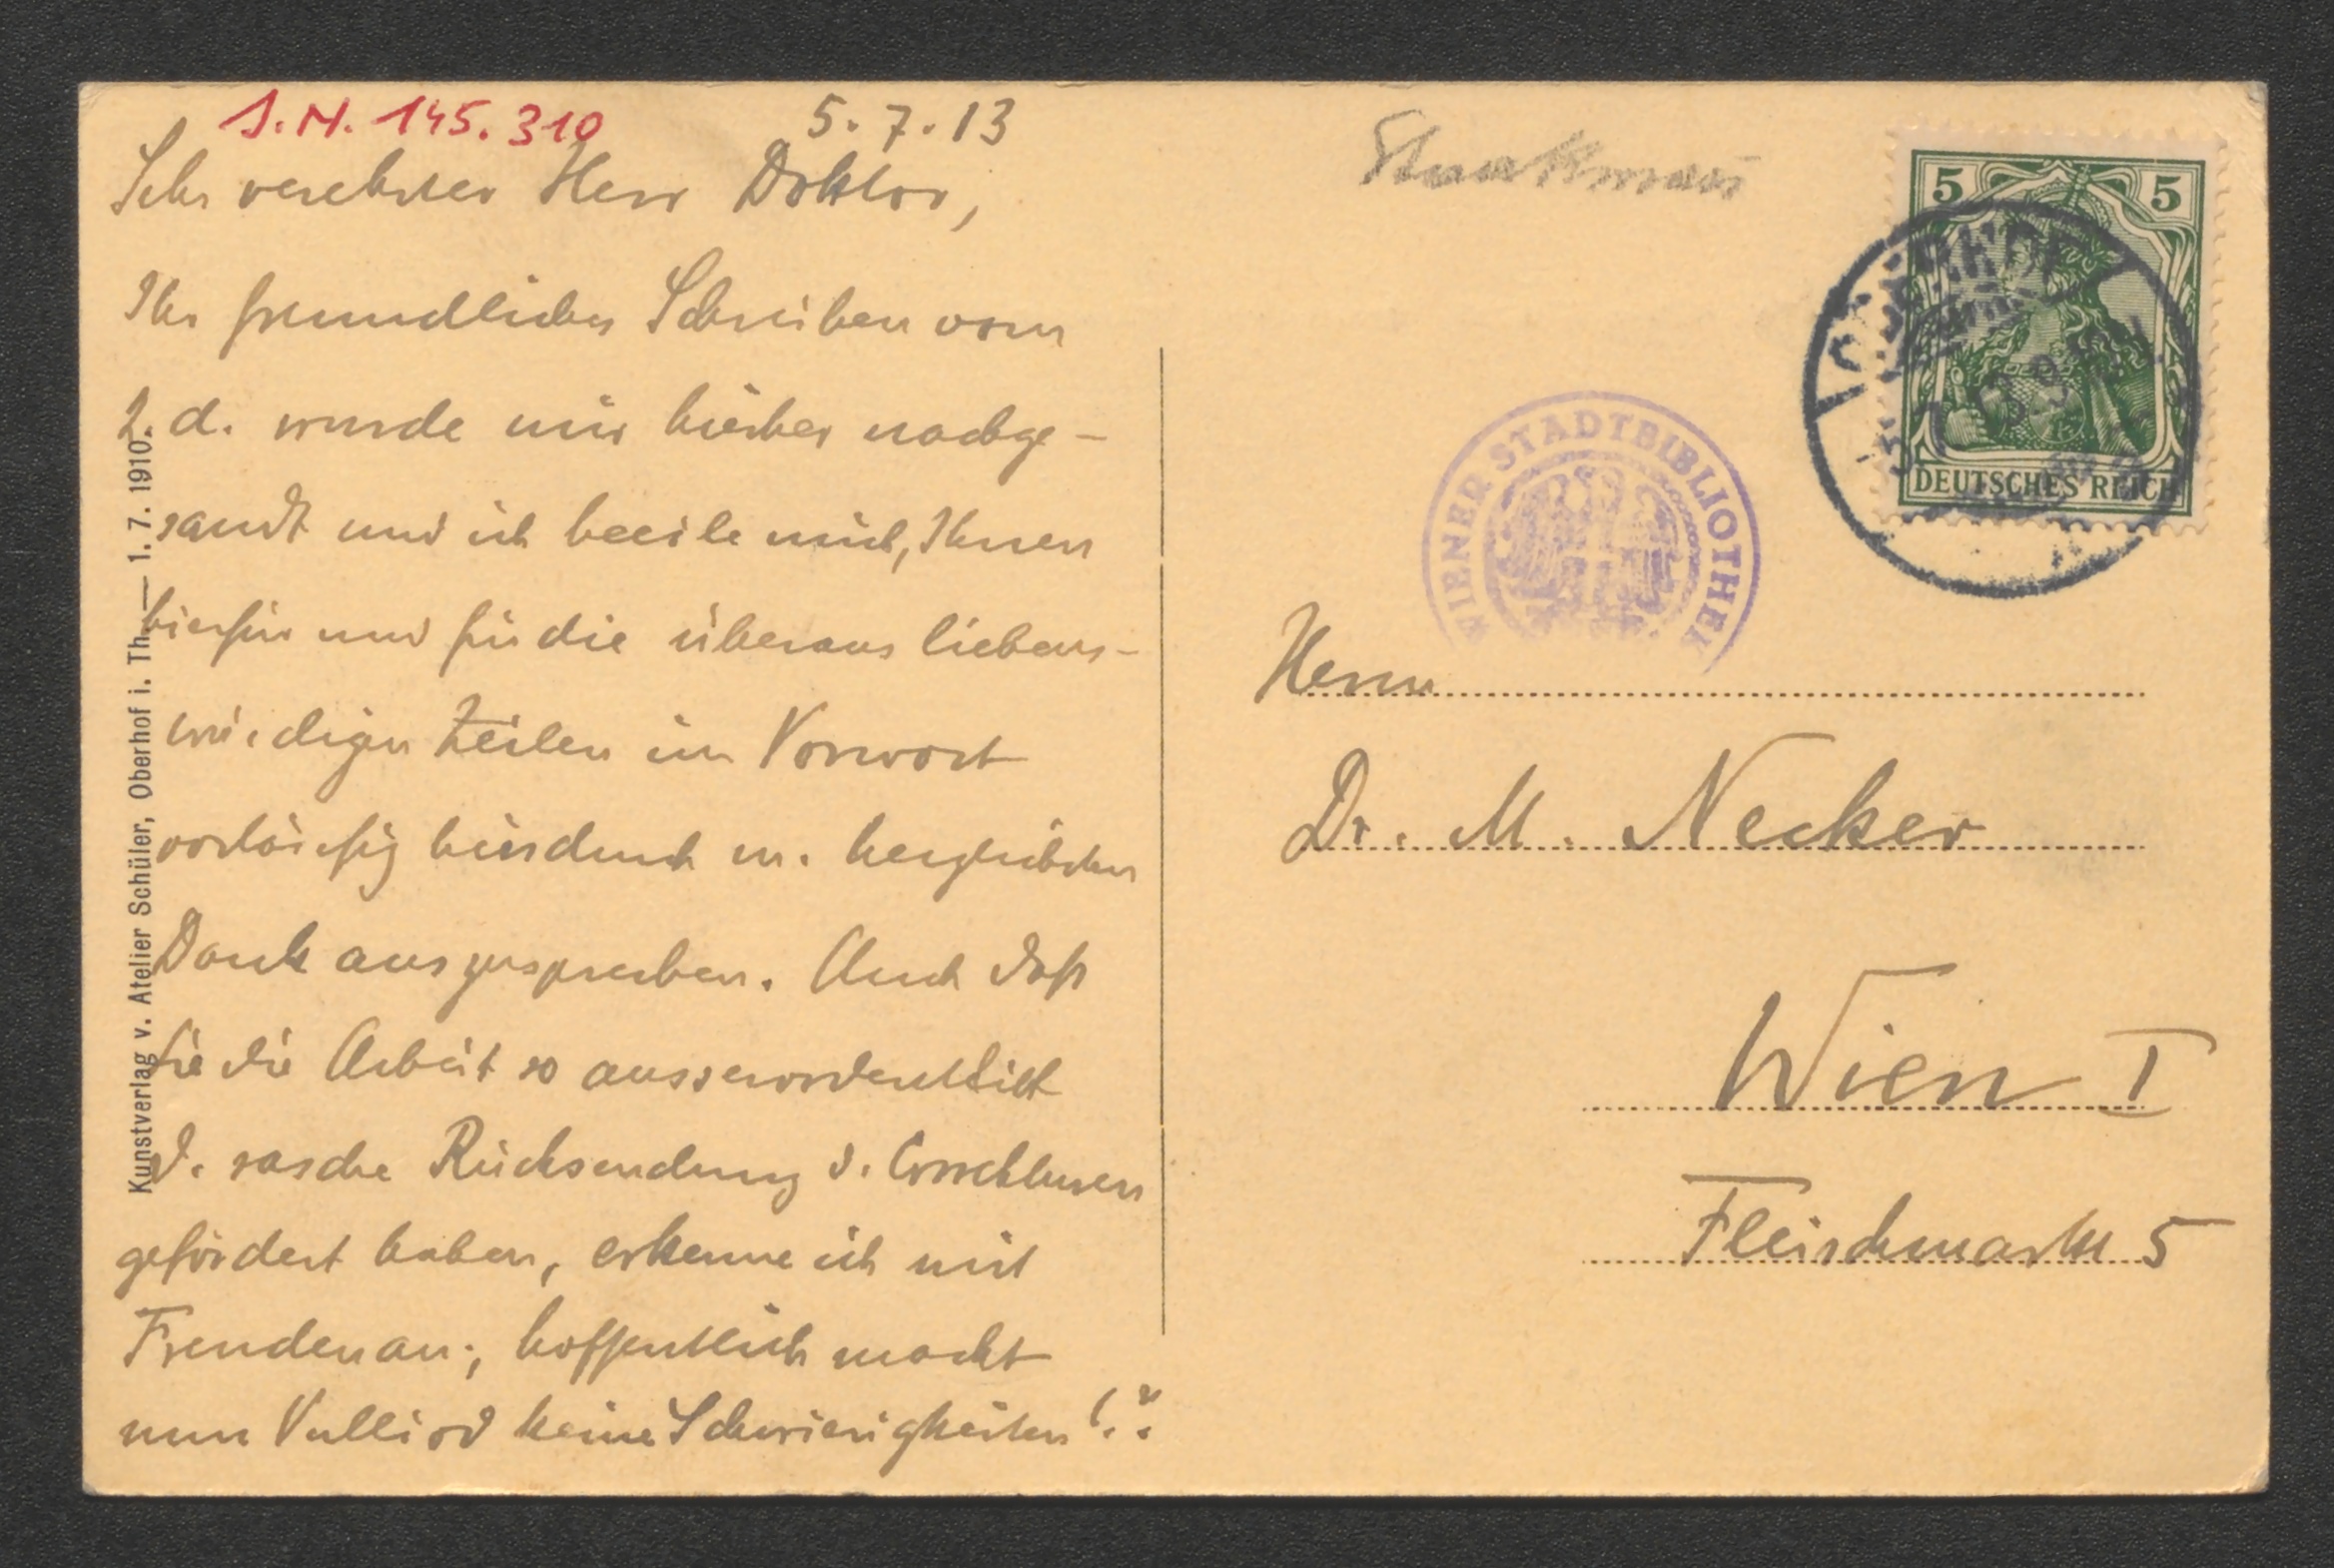 J.N. 145.310
5.7.13
Sehr verehrter Herr Doktor,
Ihr freundliches Schreiben vom
2. d. wurde mir hierher nachge-
sandt und ich beeile mich, Ihnen
hierfür und für die überaus liebens-
würdigen Zeilen im Vorwort
vorläufig hierdurch m. herzlichsten
Dank auszusprechen. Auch daß
Sie die Arbeit so ausserordentlich
d. rasche Rücksendung d. Correkturen
gefördert haben, erkenne ich mit
Freuden an; hoffentlich macht
nun keine Schwierigkeiten!
Kunstverlag v. Atelier Schüler, Oberhof i. Th. — 1. 7. 1910.
5 5
DEUTSCHES REICH
WIENER STADTBIBLIOTHEK
Herrn
Dr. M. Necker
Wien I
Fleischmarkt 5